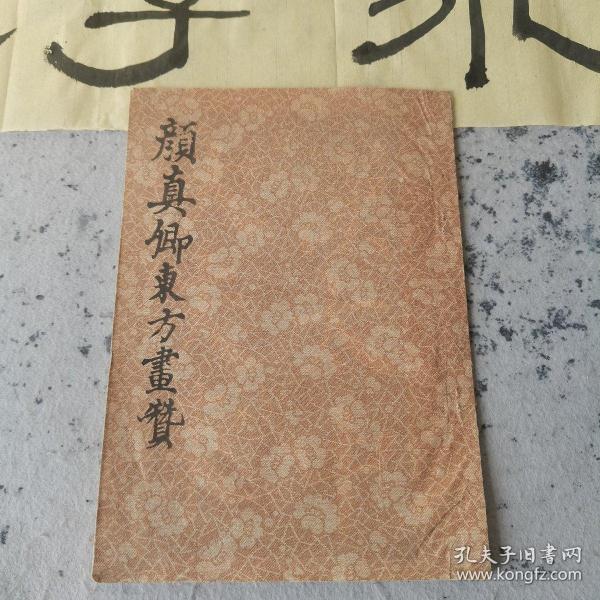 顔真卿東方畫贊
孔夫子旧書网
www.kongfz.com